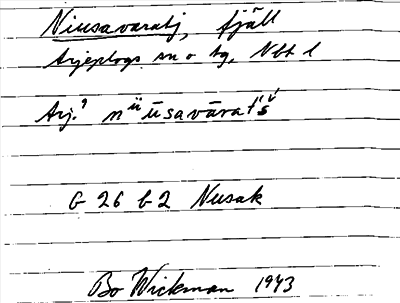 Niusavaratj, fjäll
Arjeplogs sn o tg, Nbt l
Arj.
G 26 b 2 Nusak
Bo Wickman 1943